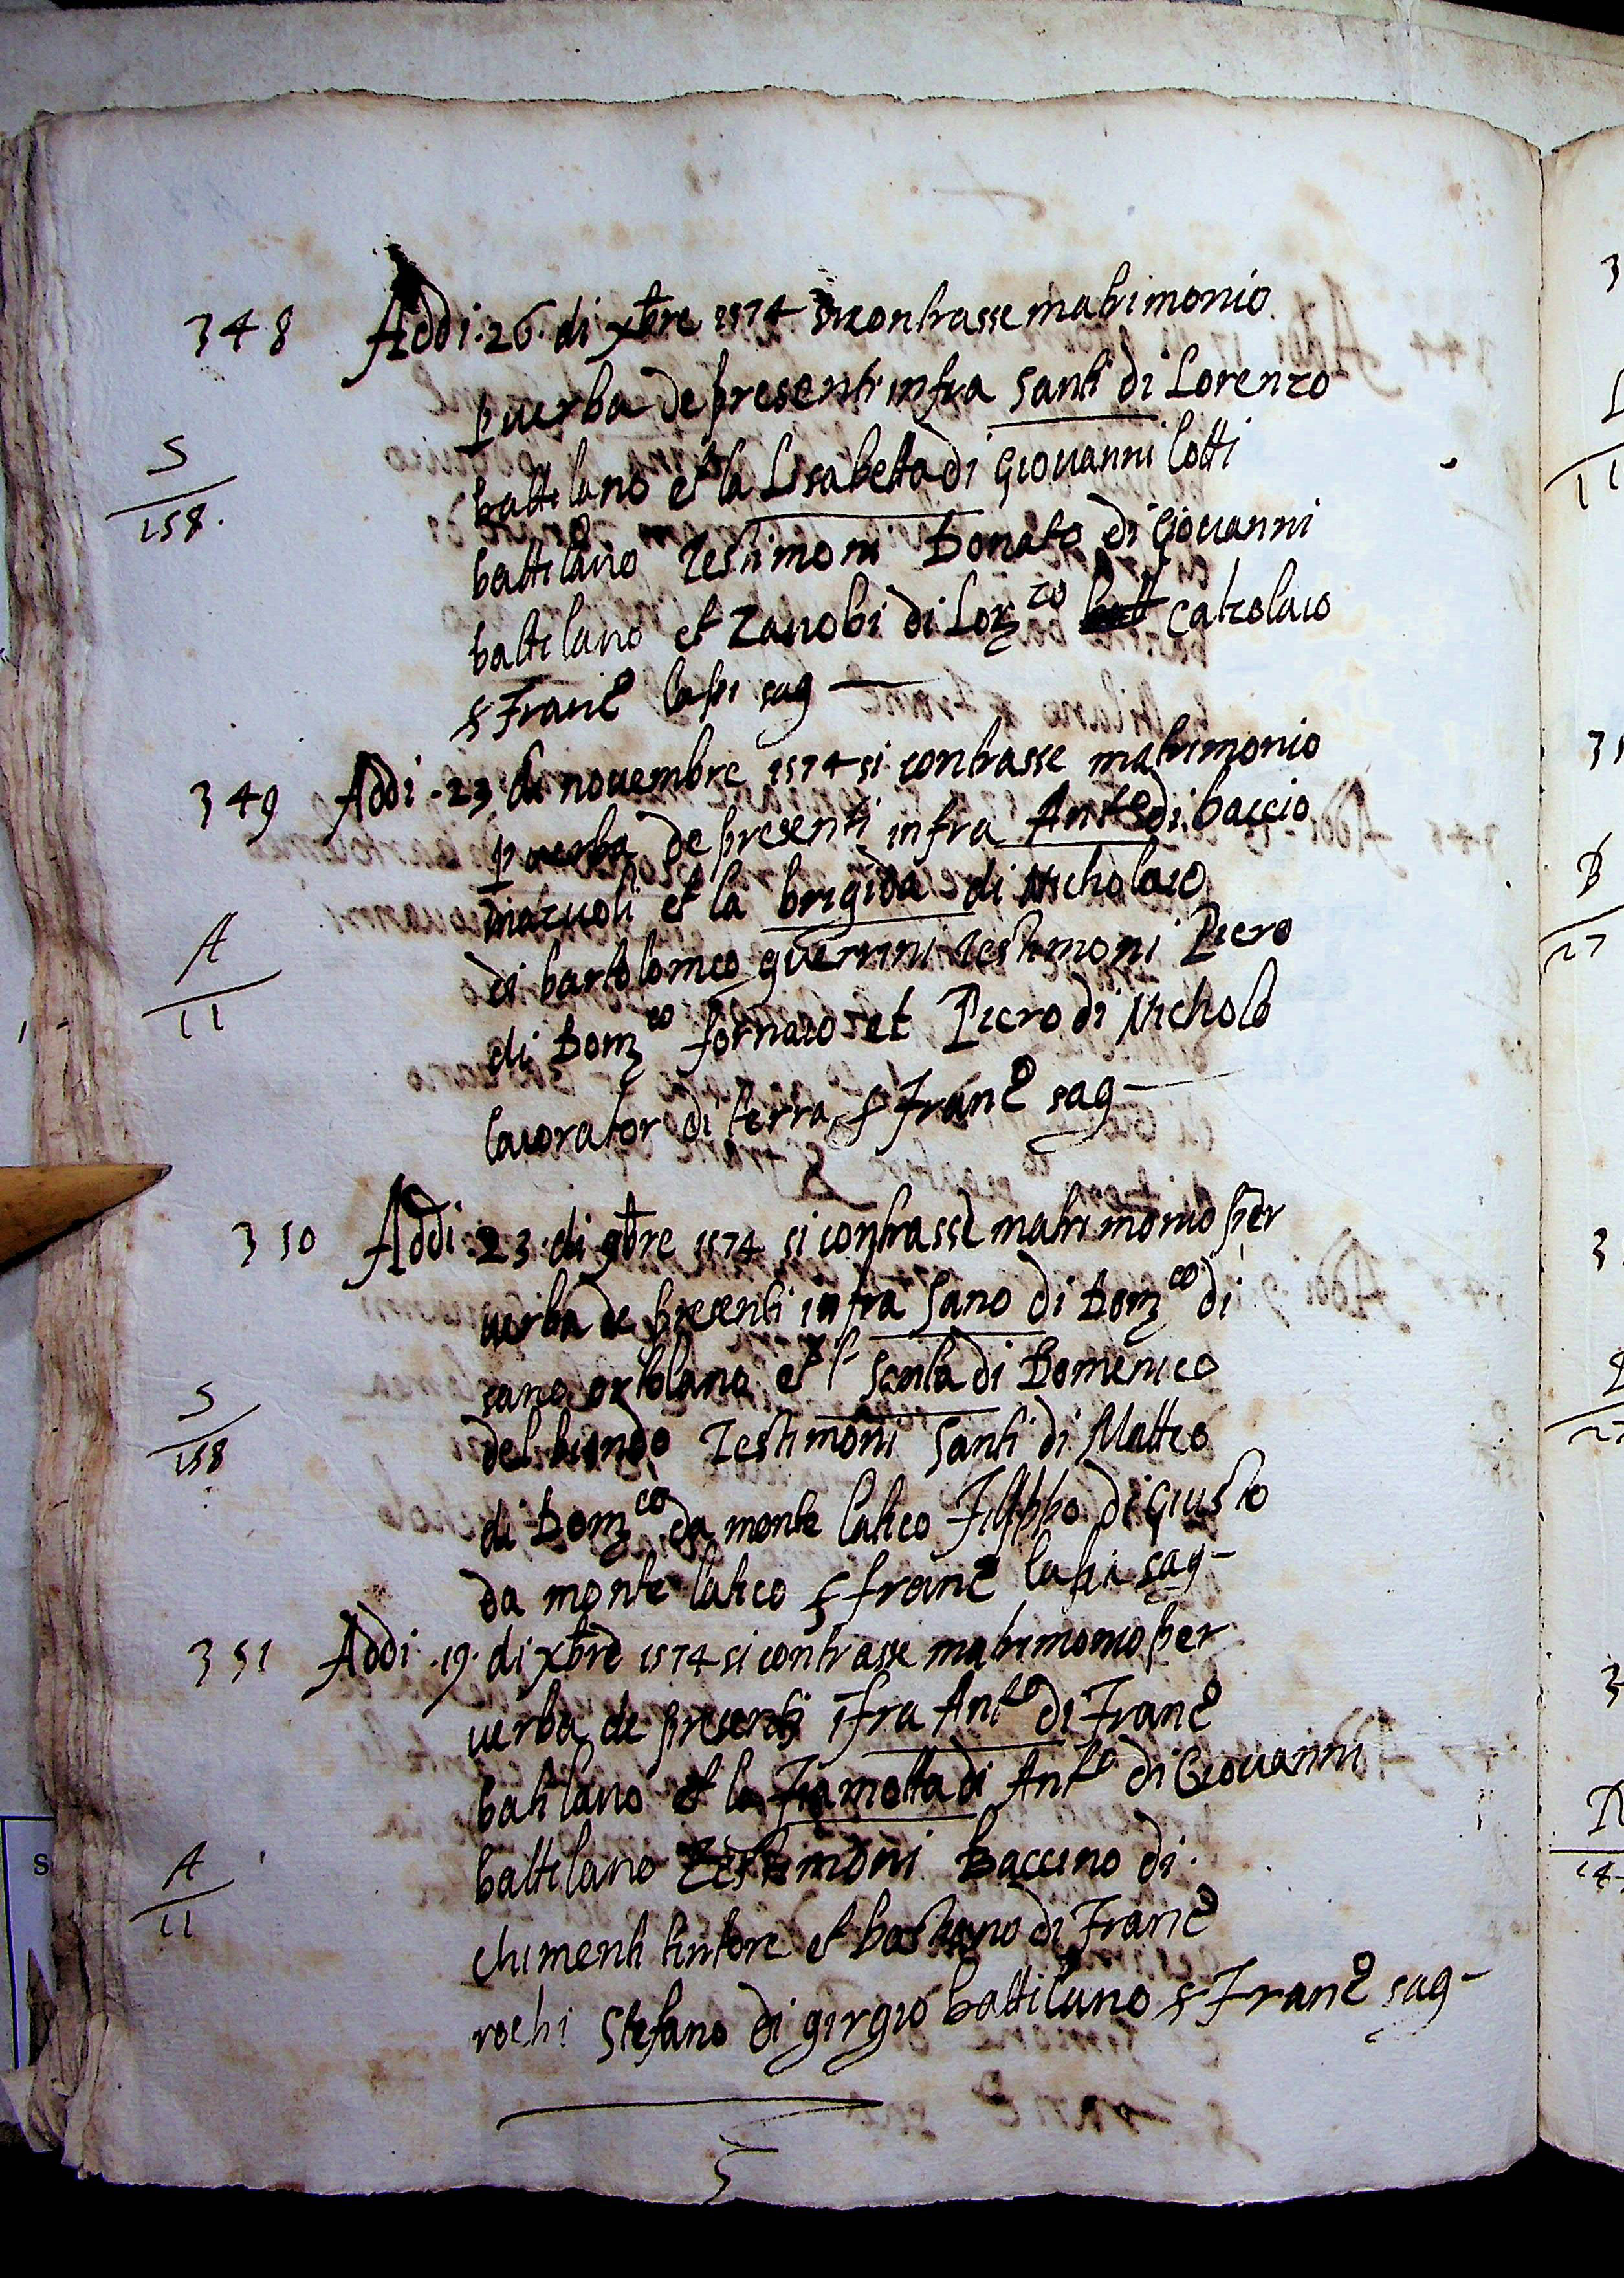 348 Addi .26. di xbre 1574 si contrasse matrimonio
p verba de presenti infra Santi di Lorenzo
battilano et la Lisabetta di Giovanni Lotti
S
158.
battilano Testimoni Donato di Giovanni
battilano et Zanobi di Lorzo calzolaio
s Franco lapi sag
349 Addi .23 di novembre 1574 si contrasse matrimonio
p verba de presenti infra Anto di baccio
et la brigida di Nicholaio
A
11
di bartolomeo guerrini testimoni Piero
di Domco fornaio et Piero di Nicholo
lavorator di terra s Franco sag
350 Addi .23. di 9bre 1574 si contrasse matrimonio per
verba de presenti infra Sano di Domco di
sano ortolano et la Santa di Domenico
S
158
del biondo Testimoni Santi di Matteo
di Domco da monte Filippo di Giusto
da monte s franco lapi sag
351 Addi .19. di xbre 1574 si contrasse matrimonio per
verba de presenti ifra Anto di Franco
batilano et la Fiametta di Anto di Giovanni
A
11
battilano Testimoni Baccino di
chimenti tintore et bastiano di Franco
rochi Stefano di girgio battilano s Franco sag